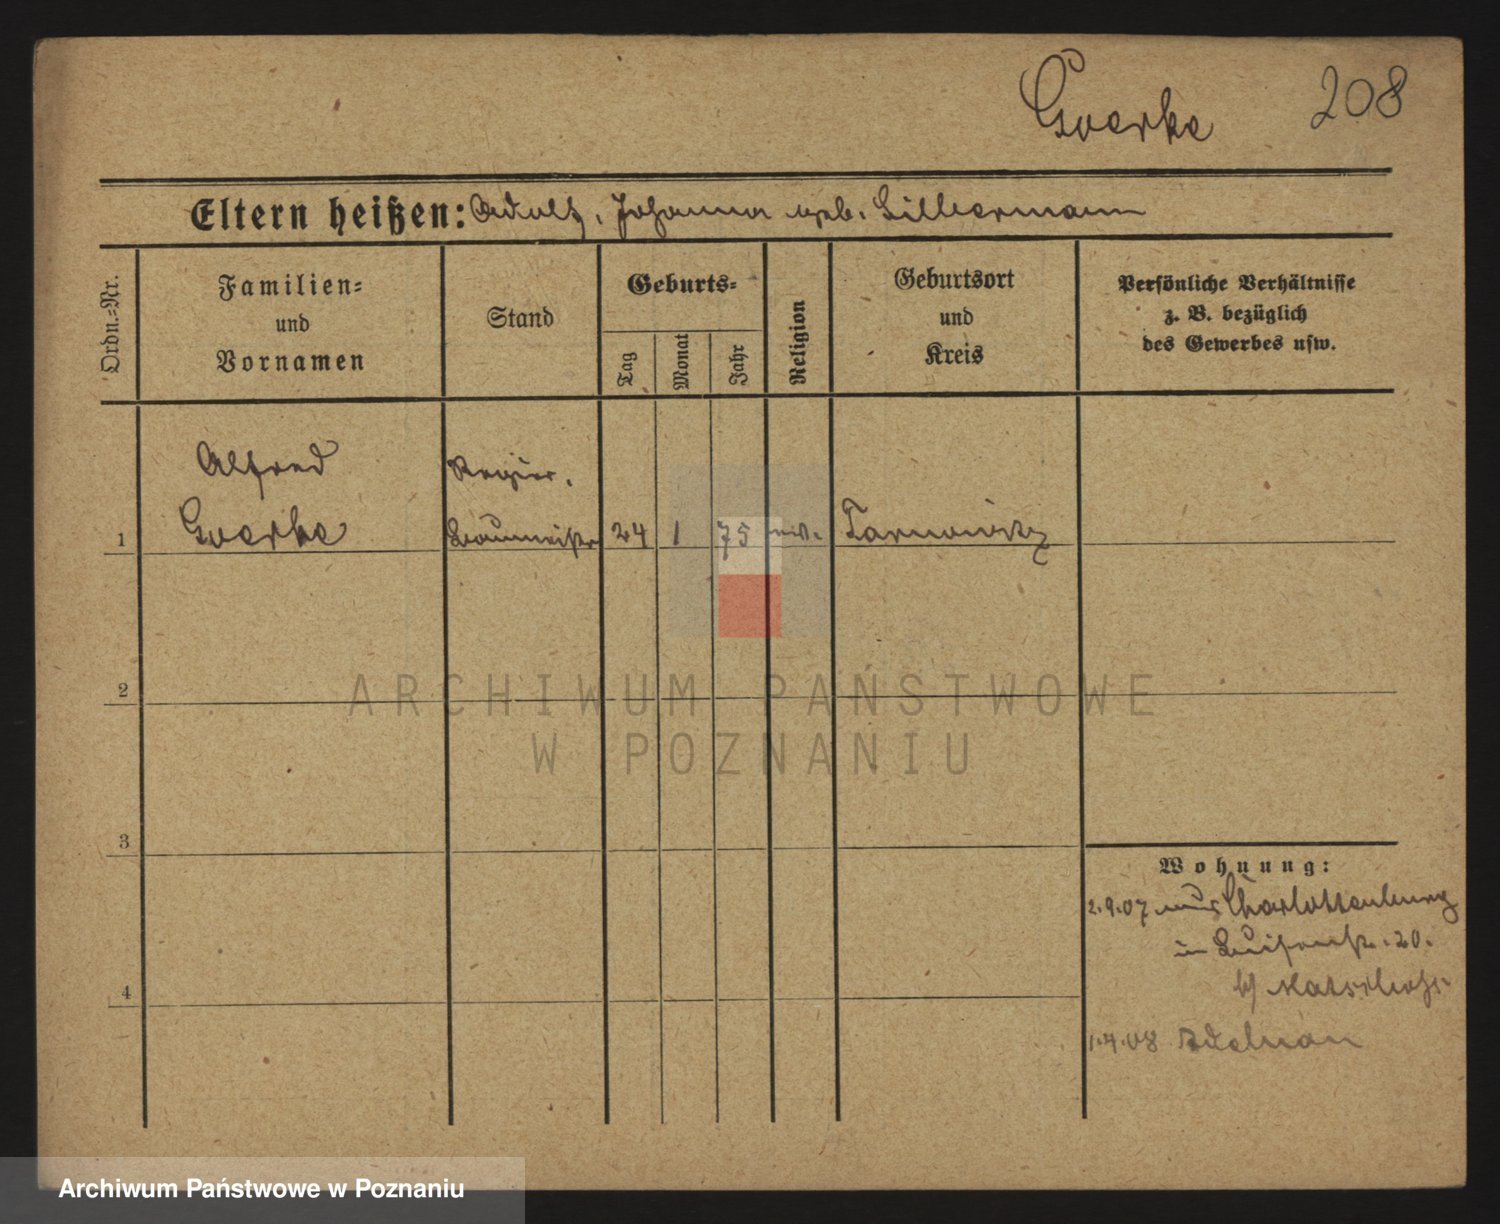 Goerke 208
Eltern heißen: Adolf, Johanna geb. Silbermann
Ordn.=Nr.
Familien=
und
Vornamen
Stand
Geburts=
Tag
Monat
Jahr
Religion
Geburtsort
und
Kreis
Persönliche Verhältnisse
z. B. bezüglich
des Gewerbes usw.
Alfred
Goerke
Regier.
Baumeister
1 24 1 75 Tarnowitz
2
3
4
ARCHIWUM PAŃSTWOWE
W POZNANIU
Wohnung:
2.9.07 aus Charlottenburg
in Luisenstr. 20.
b/
1.4.08 Adelnau
Archiwum Państwowe w Poznaniu